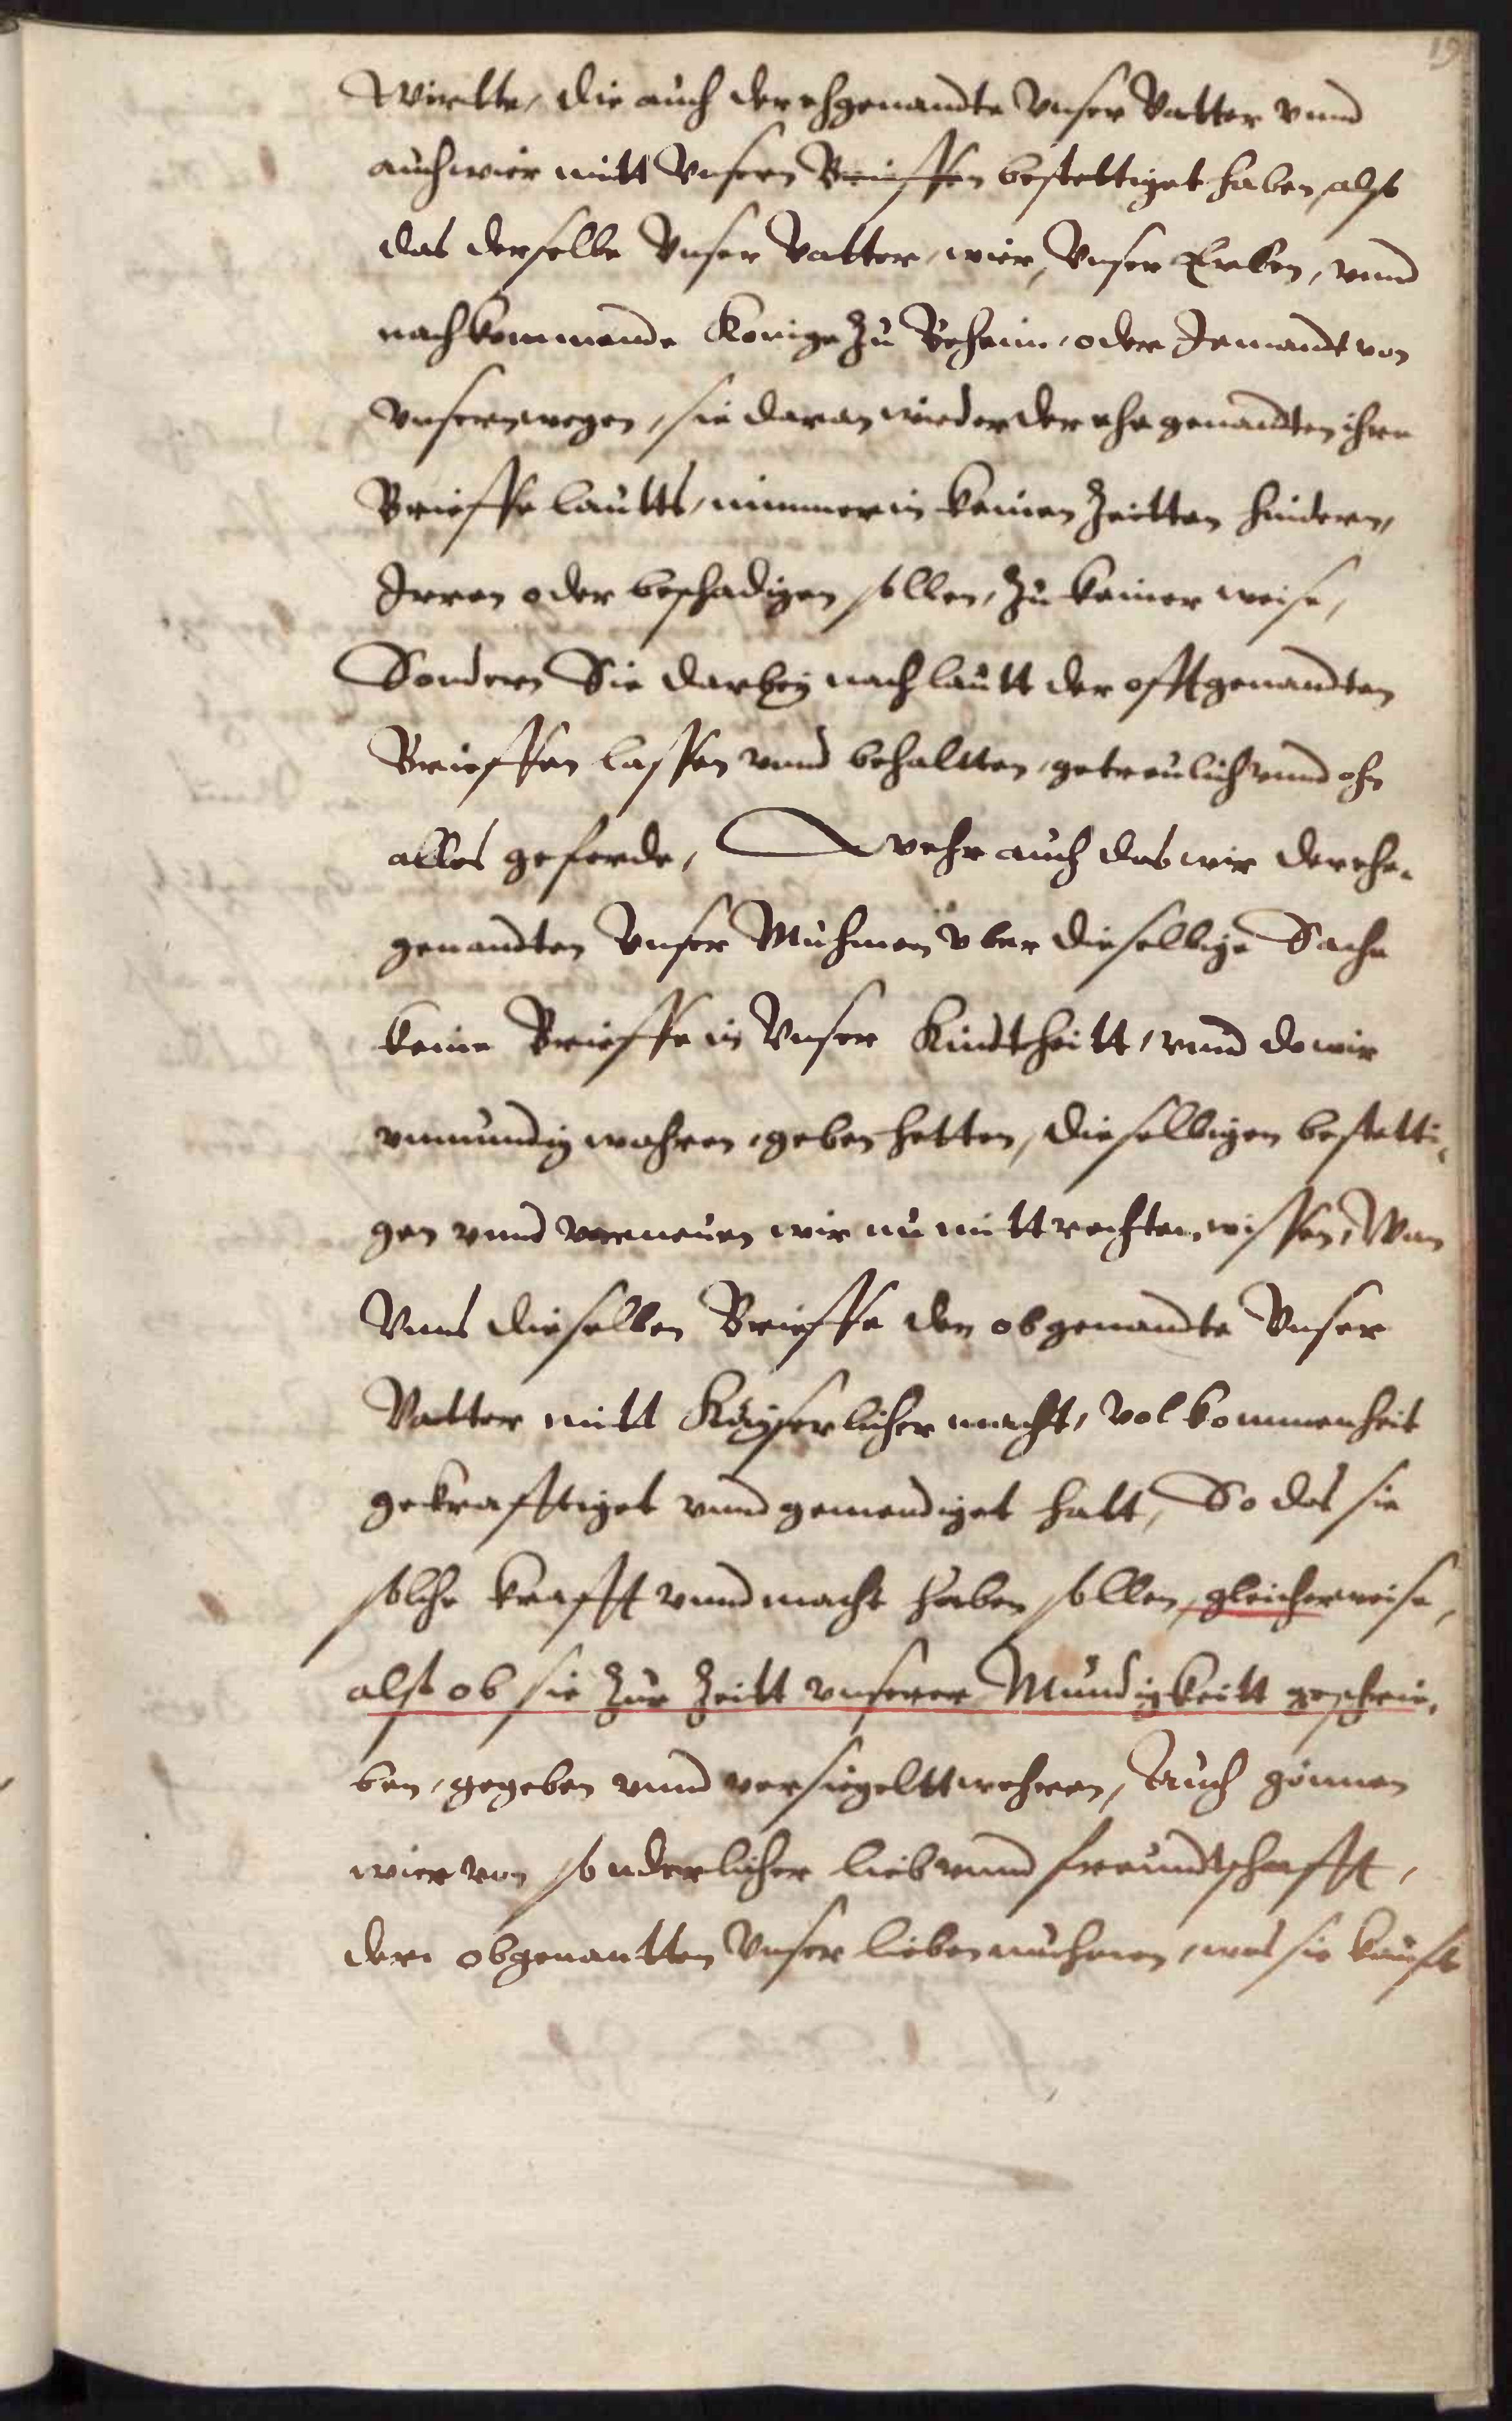 19
Wirtte, die auch der ehgenandte Vnser Vatter vnnd
auch wier mitt Vnsern Brieffen bestettiget haben, alst
das derselbe Vnser Vatter, wier, Vnser Erben, vnnd
nachkommende Konige zu Beheim, oder Jemandt von
vnsern wegen, sie daran wieder der ehe genandten ihre
Brieffe lautts, nimmer in keinen Zeitten hindern,
Irren oder beschadigen sollen, zu keiner weise,
Sondern Sie darbey nach lautt der offtgenandten
Brieffen lassen vnnd behaltten, getreulich vnnd ohn
alles geferde, Wehr auch das wir der ehe-
genandten Vnser Muhmen vber dieselbige Sache
keine Brieffe in Vnser Kindtheitt, vnnd do wir
vnmundig wahren, geben hetten, dieselbigen bestetti-
gen vnnd verneuen wir nu mitt rechten wissen, Wan
Vnns dieselben Brieffe den obgenandte Vnser
Vatter mitt Kayserlicher macht, volkommenheit
gekrafftiget vnnd gemendiget hatt, So das sie
solche krafft vnnd macht haben sollen, gleicherweise,
alst ob sie zur Zeitt vnserer Mundigkeitt geschrie-
ben, gegeben vnnd versiegeltt wehren, Auch gönnen
wier von sonderlicher lieb vnnd freundtschafft,
der obgenantten Vnser lieben muhmen, was sie kauft